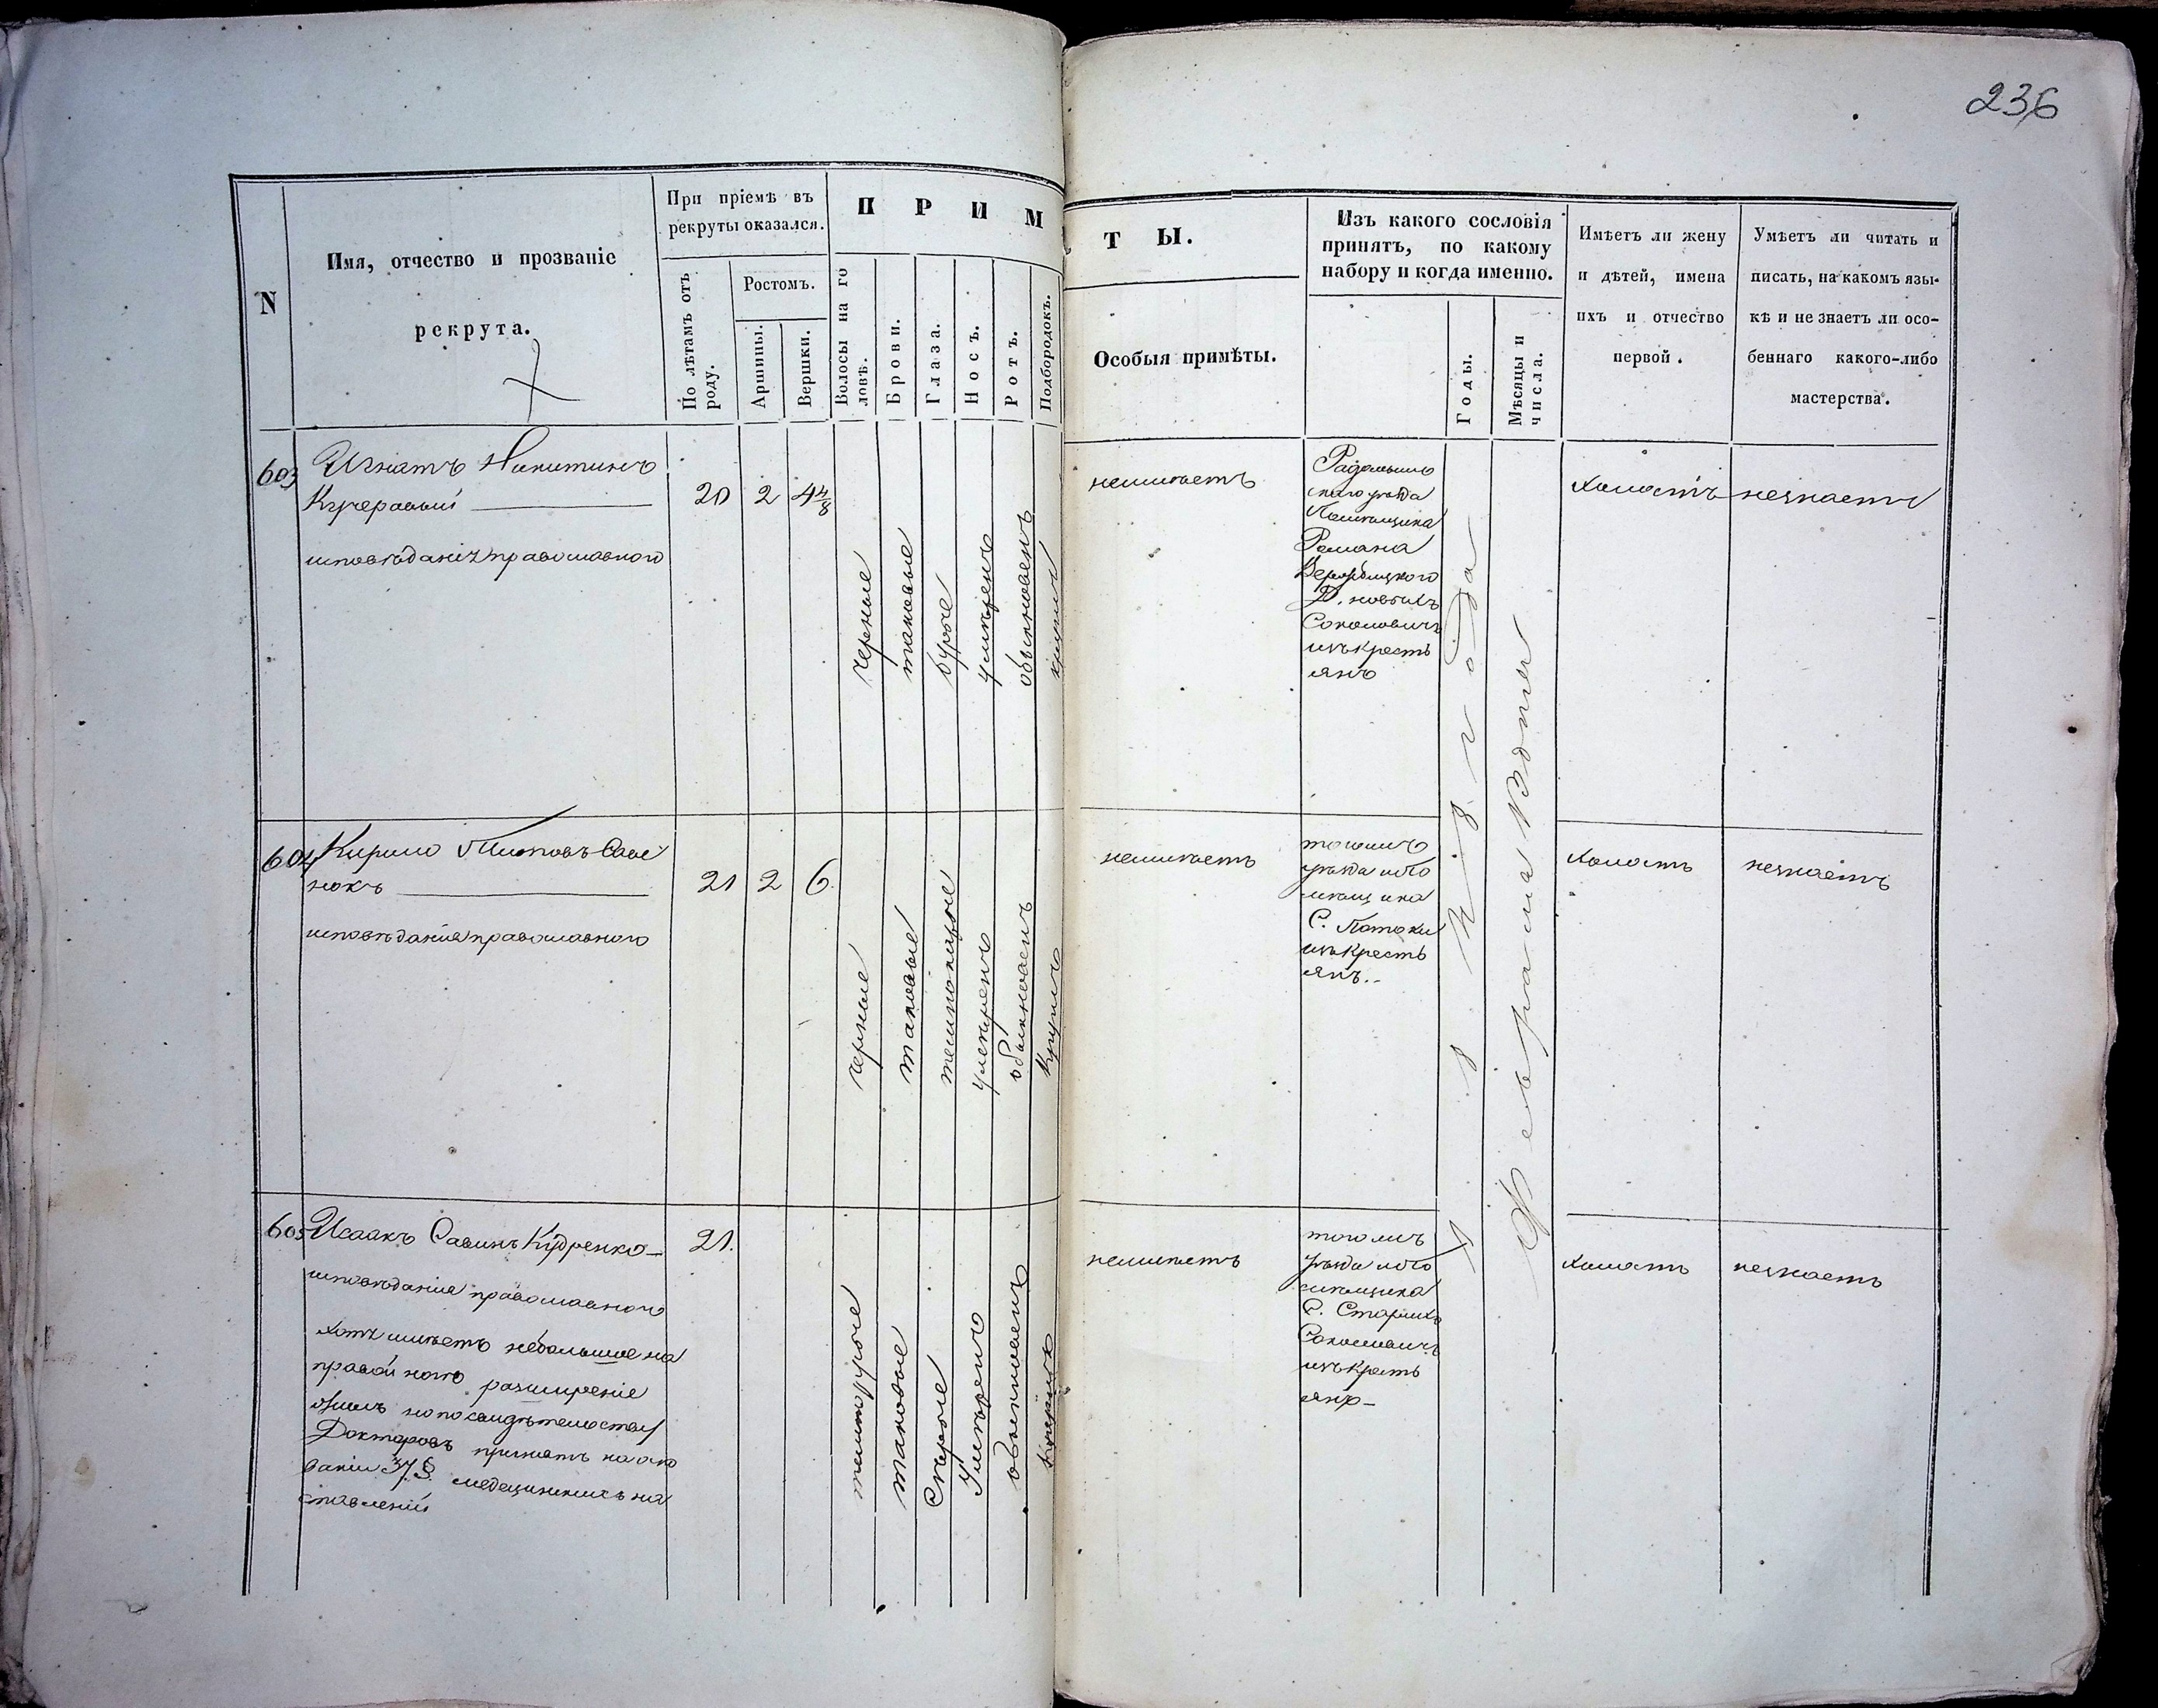 236
N
Имя, отчество и прозваніе
рекрута.
При пріемѣ въ
рекруты оказался.
По лѣтамъ отъ
роду.
Ростомъ.
Аршины.
Вершки.
П Р И М
Волосы на го
ловѣ.
Брови.
Глаза.
Носъ.
Ротъ.
Подбородокъ.
Т Ы.
Особыя примѣты.
Изъ какого сословія
принятъ, по какому
набору и когда именно.
Годы.
Мѣсяцы и
числа.
Имѣетъ ли жену
и дѣтей, имена
ихъ и отчество
первой.
Умѣетъ ли читать и
писать, на какомъ язы-
кѣ и не знаетъ ли осо-
беннаго какого-либо
мастерства.
603
Игнатъ Никитинъ
Кучеравый
исповѣданія православного
20
2
4 4/8
черные
таковые
бурые
умѣренъ
обыкновенъ
круглъ
неимѣетъ
Радомысль
скаго уѣзда
Помѣщика
Романа
Д. новыхъ
Соколовичъ
изъ крестъ
янъ
холостъ
незнаетъ
604
Кирило
нокъ
исповѣданія православного
21
2
6
черные
таковые
темнокарые
умѣренъ
обыкновенъ
круглъ
неимѣетъ
тогожъ
уѣзда ипо
мѣщика
С. Потоки
изъ крестъ
янъ.
холостъ
незнаетъ
605
Исаакъ Савинъ Кудренко
исповѣданія православного
хотя имѣетъ небольшое на
правой ноге расширеніе
жилъ но по свидѣтельству
Докторовъ принятъ на осно
ваніи 37 §. медецинскихъ на
ставленій
21.
темнорусые
таковые
Сѣрые
Умѣренъ
обыкновенъ
круглъ
неимѣетъ
тогожъ
уѣзда ипо
мѣщика
С. Старыхъ
Соколовичъ
изъ крестъ
янъ
холостъ
незнаетъ
года
Февраля 13 дня